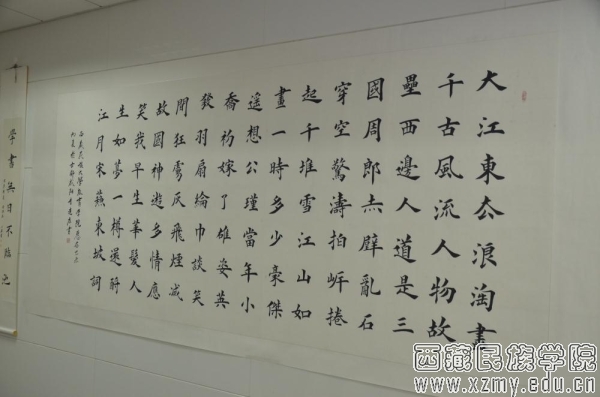 大江東去浪淘盡
千古風流人物故
壘西邊人道是三
國周郎赤壁亂石
穿空驚濤拍岸捲
起千堆雪江山如
畫一時多少豪傑
遙想公瑾當年小
喬初嫁了雄姿英
發羽扇綸巾談笑
間狂虜灰飛煙滅
故國神遊多情應
笑我早生華髮人
生如夢一樽還酹
江月宋蘇東坡詞
學書無日不臨池
西藏民族学院
www.xzmy.edu.cn